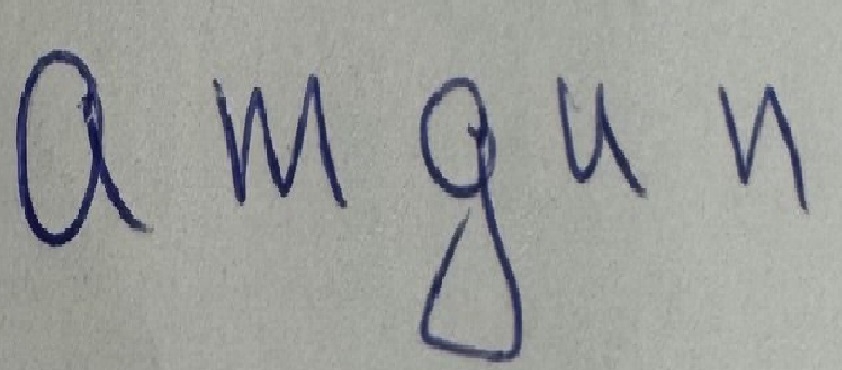 a m g u n